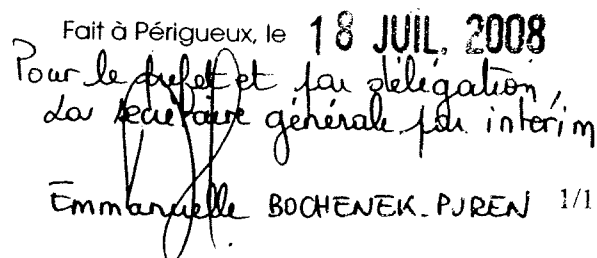 Fait à Périgueux, le 18 JUIL. 2008
Pour le préfet et par délégation,
La secrétaire générale par interim
Emmanuelle BOCHENEK-PUREN 1/1